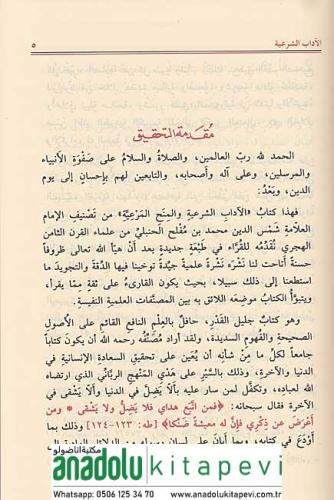 الآداب الشرعية
٥
مقدمة التحقيق
الحمد لله ربّ العالمين، والصلاةُ والسلامُ على صَفْوَة الأنبياء
والمرسلين، وعلى آله وأصحابِه، والتابعين لهم بإحسانٍ إلى يوم
الدين، وبَعْدُ:
فهذا كتابُ «الآدابِ الشرعيةِ والمِنَحِ المَرْعيّةِ» من تصنيفِ الإمامِ
العلّامةِ شَمْس الدين محمد بن مُفْلح الحنبليِّ من علماء القرن الثامن
الهجري نُقدِّمُه للقُرّاء في طَبْعَةٍ جديدةٍ بعد أنْ هَيّأَ الله تعالى ظروفاً
حسنةً أتاحت لنا نَشْرَه نشرةً علميةً جيّدةً توخينا فيها الدِّقّةَ والتجويدَ ما
استطعنا إلى ذلك سبيلا، بحيث يكون القارىءُ على ثقةٍ ممّا يقرأ،
ويتبوَّأُ الكتابُ موضِعَه اللائقَ به بين المصنّفاتِ العلميةِ النفيسة.
وهو كتابٌ جليلُ القَدْرِ، حافلٌ بالعِلْمِ النافعِ القائمِ على الأصولِ
الصحيحة والفهوم السديدة، ولقد أراد مُصنِّفُه رحمه الله أن يكونَ كتاباً
جامعاً لكلِّ ما مِنْ شأنِه أن يُعينَ على تحقيقِ السعادةِ الإنسانيةِ في
الدنيا والآخرة، وذلك بالسَّيْرِ على هَدْي المنهجِ الربانيِّ الذي ارتضاه
الله لعبادِه، وتكفَّل لمن سار عليه بألّا يَضِلَّ في الدنيا وألّا يَشْقى في
الآخرة فقال سبحانه: ﴿فمن اتَّبَعَ هداي فلا يَضِلُّ ولا يشقى * ومن
أعرَضَ عن ذِكْري فإنّ له معيشةً ضَنْكا﴾ [طه: ١٢٣-١٢٤] وذلك بما
أوْدَعَ في كتابه،
مكتبة اناضولو
anadolukitapevi
Whatsapp: 0506 125 34 70
www.anadolukitapevi.com